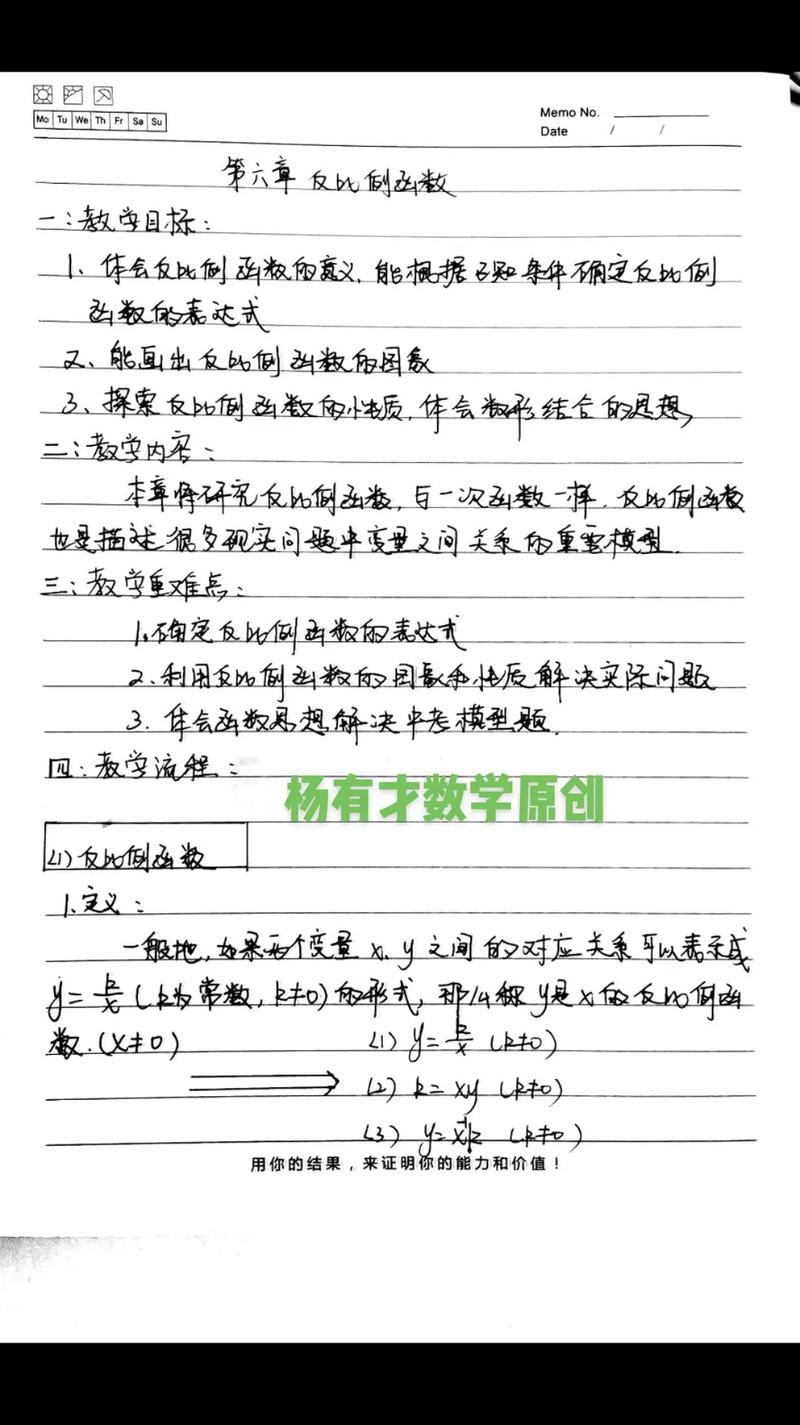 Mo Tu We Th Fr Sa Su
Memo No.
Date / /
第六章 反比例函数
一：教学目标：
1、体会反比例函数的意义，能根据已知条件确定反比例
函数的表达式
2、能画出反比例函数的图象
3、探索反比例函数的性质，体会数形结合的思想
二：教学内容：
本章将研究反比例函数，与一次函数一样，反比例函数
也是描述很多现实问题中变量之间关系的重要模型.
三：教学重难点：
1.确定反比例函数的表达式
2.利用反比例函数的图象和性质解决实际问题
3.体会函数思想解决中考模型题.
四：教学流程：
杨有才数学原创
(1)反比例函数
1.定义：
一般地，如果两个变量x、y之间的对应关系可以表示成
y=k/x(k为常数，k≠0)的形式，那么称y是x的反比例函
数.(x≠0)
(1) y=k/x (k≠0)
(2) k=xy (k≠0)
(3) y=x⁻¹k (k≠0)
用你的结果，来证明你的能力和价值！